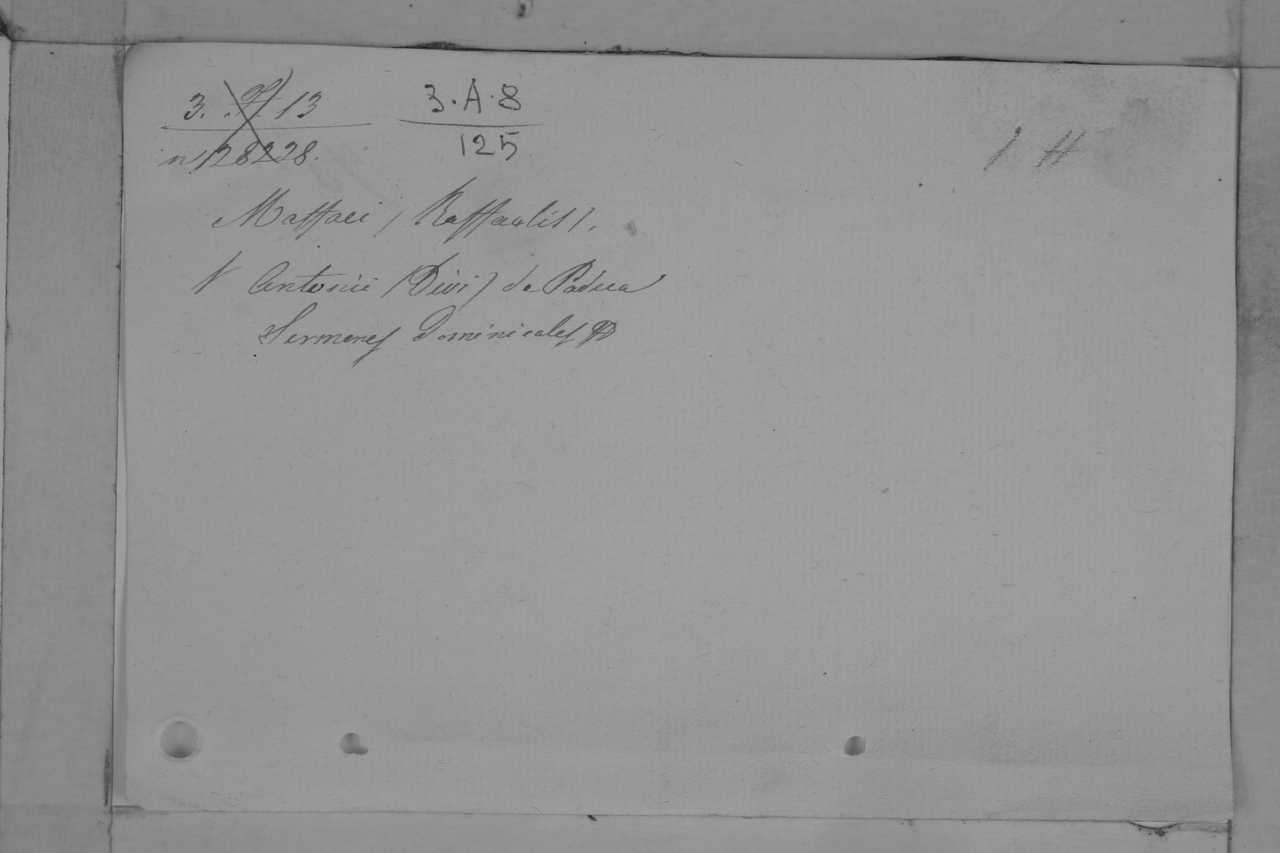 3. . A. 13 3. A. 8
n 128228. 125
Maffaei (Raffaelis).
V Antonii (Divi) de Padua
Sermones Dominicales